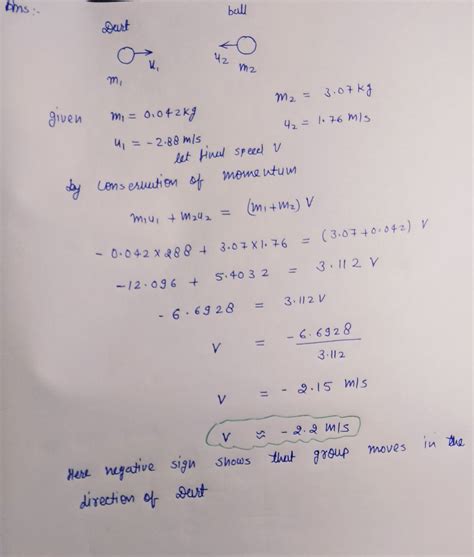 Ans:-
Dart ball
u₁ u₂
m₁ m₂
given m₁ = 0.042 kg m₂ = 3.07 kg
u₁ = -2.88 m/s u₂ = 1.76 m/s
let final speed V
by conservation of momentum
m₁u₁ + m₂u₂ = (m₁+m₂) V
- 0.042 × 288 + 3.07×1.76 = (3.07+0.042) V
-12.096 + 5.4032 = 3.112 V
- 6.6928 = 3.112V
V = -6.6928 / 3.112
V = - 2.15 m/s
V ≈ - 2.2 m/s
Here negative sign shows that group moves in the
direction of Dart